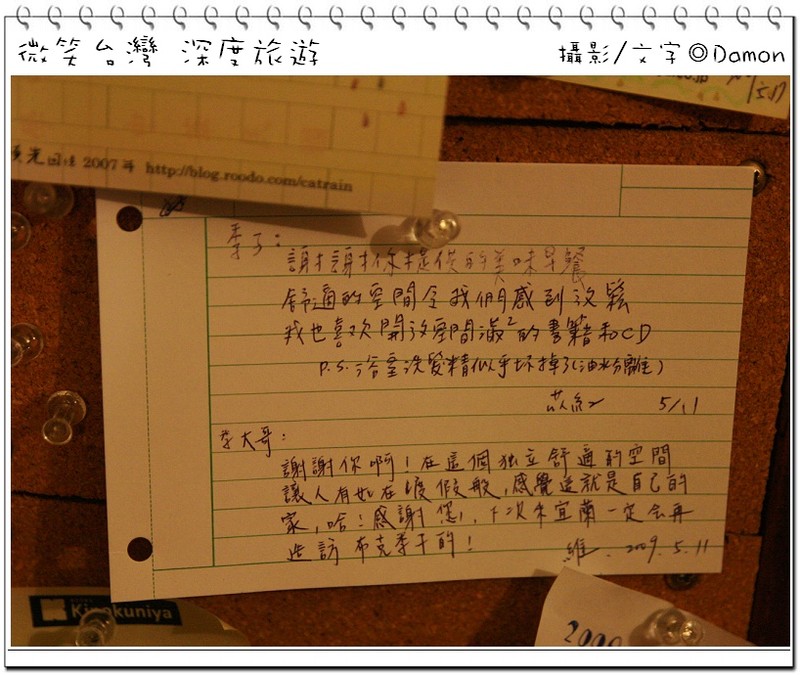 微笑台灣 深度旅遊
攝影/文字 ©Damon
5.17
2007年 http://blog.roodo.com/catrain
李子:
謝謝你提供的美味早餐
舒適的空間令我們感到放鬆
我也喜歡開放空間滿²的書籍和CD
P.S. 浴室洗髮精似乎坏掉了(油水分離)
5/11
李大哥:
謝謝你啊!在這個独立舒適的空間
讓人有如在渡假般,感覺這就是自己的
家,哈!感謝您!,下次來宜蘭一定会再
造訪布克李子的!
維. 2009.5.11
Kinokuniya